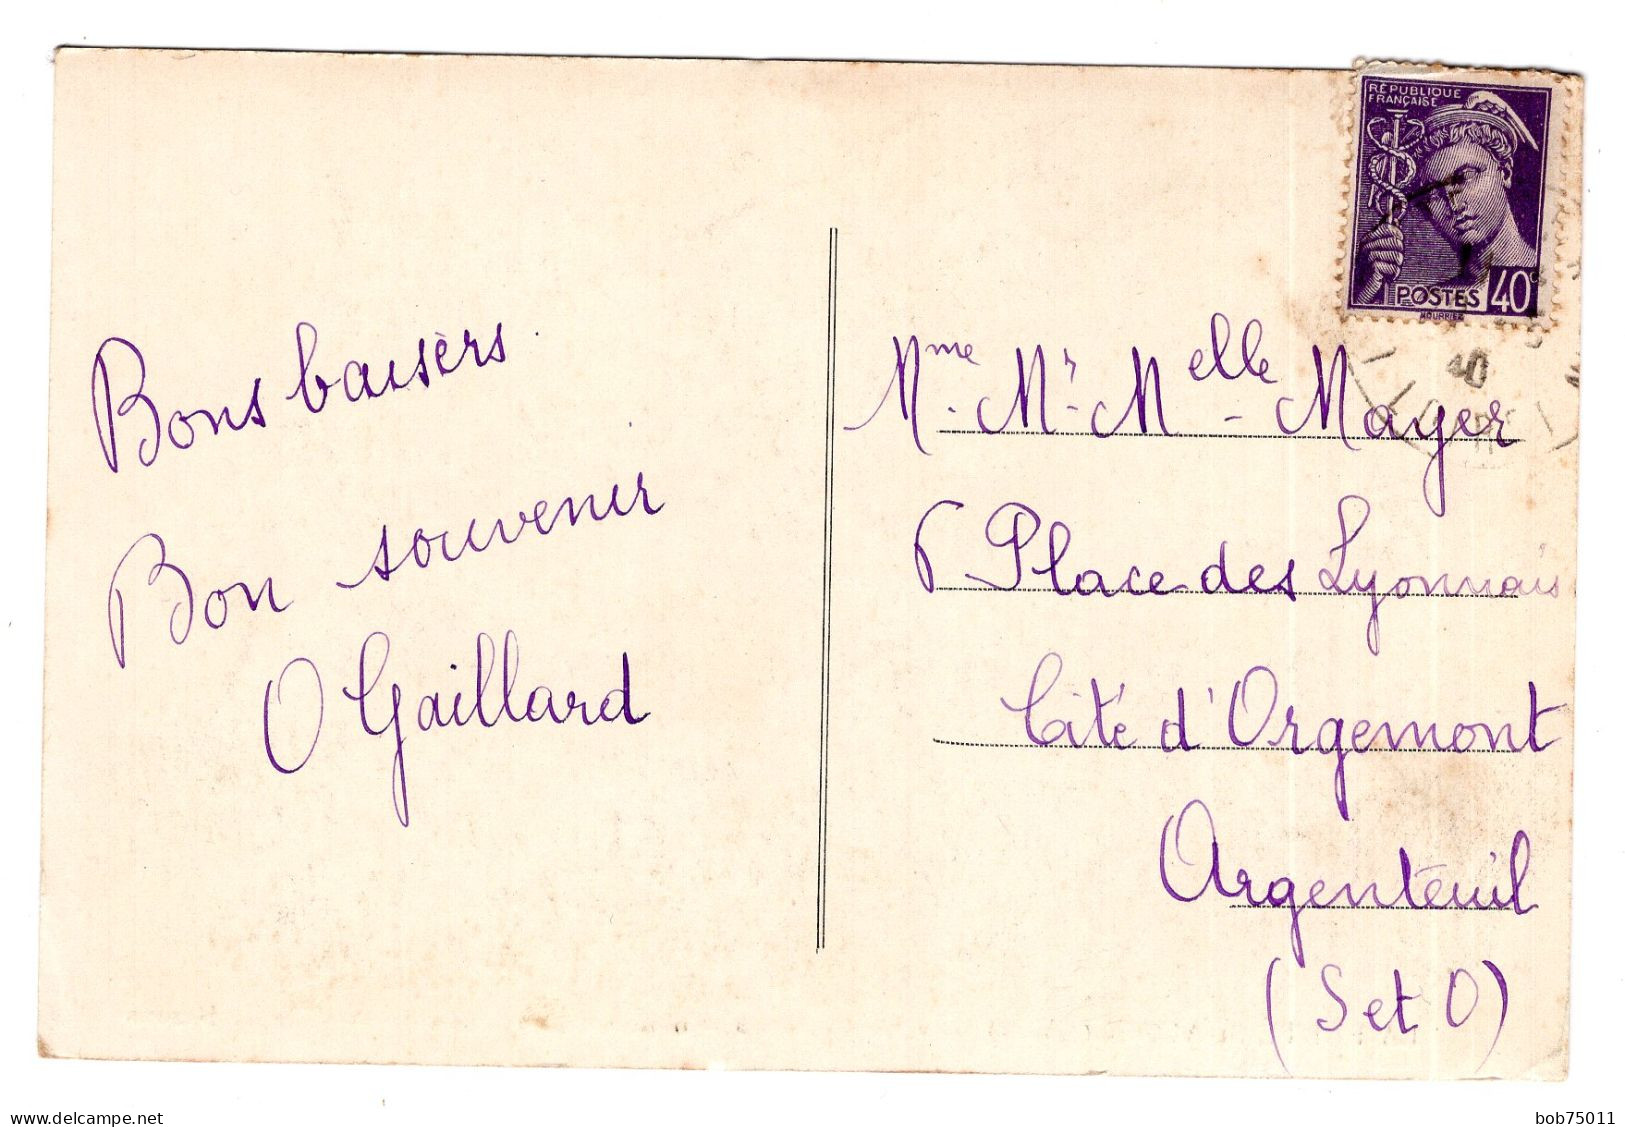 Bons baisers.
Bon souvenir
O Gaillard
RÉPUBLIQUE
FRANÇAISE
POSTES 40c
MOURRIEZ
40
Mme. Mr - Melle - Mayer
6 Place des Lyonnais
Cité d'Orgemont
Argenteuil
(S et O)
www.delcampe.net
bob75011